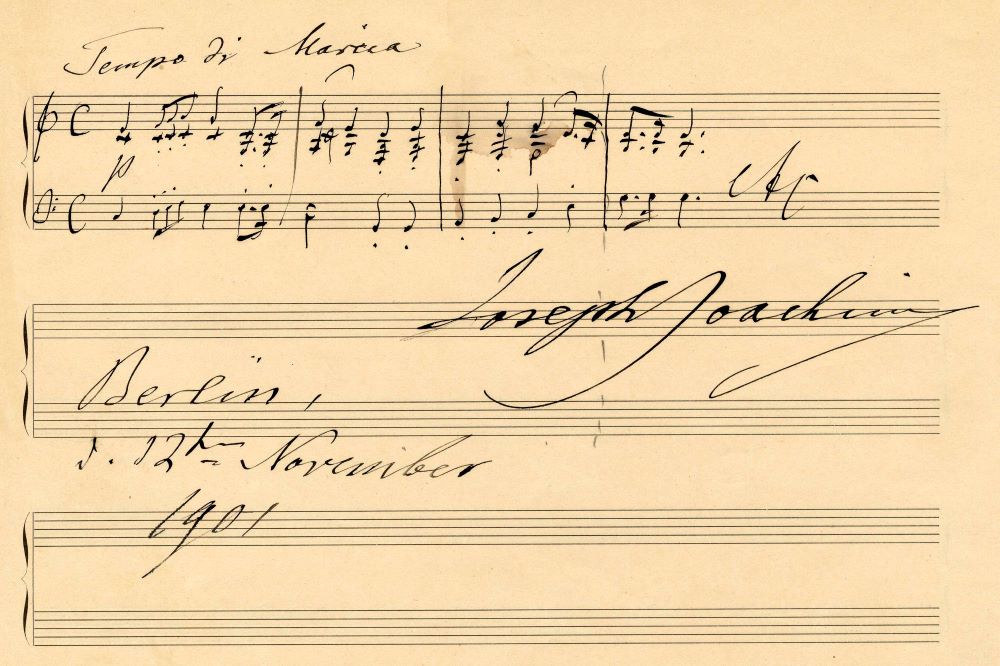 Tempo di Marcia
p
Joseph Joachim
Berlin,
d. 12ten November
1901